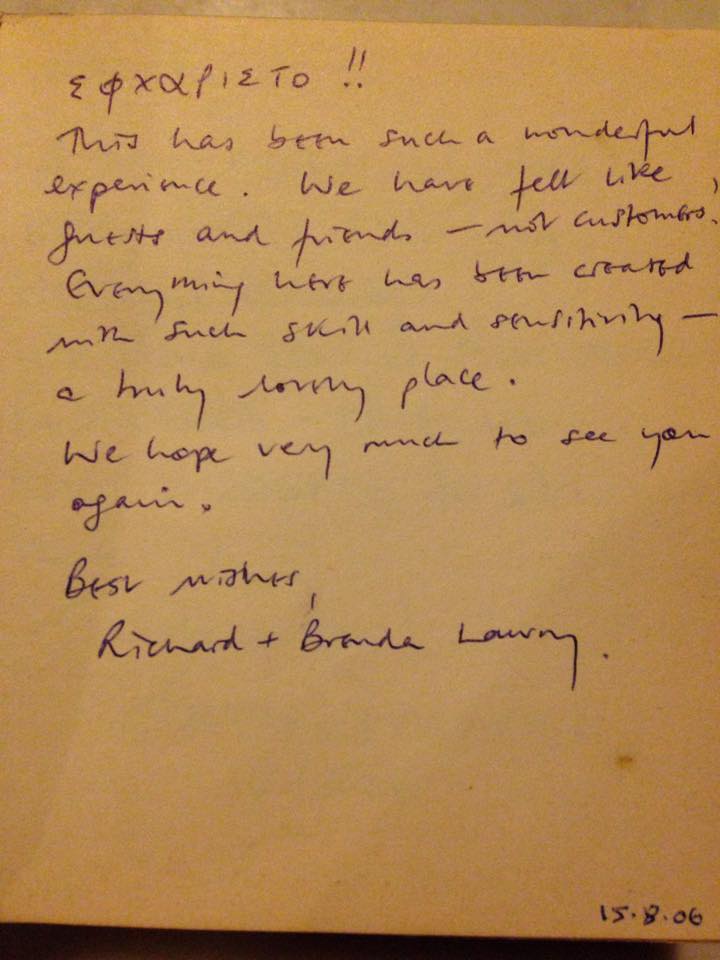 ΣΦΧΑΡΙΣΤΟ !!
This has been such a wonderful
experience. We have felt like
guests and friends — not customers.
Everything here has been created
with such skill and sensitivity —
a truly lovely place.
We hope very much to see you
again.
Best wishes,
Richard + Brenda Lowry.
15.8.06